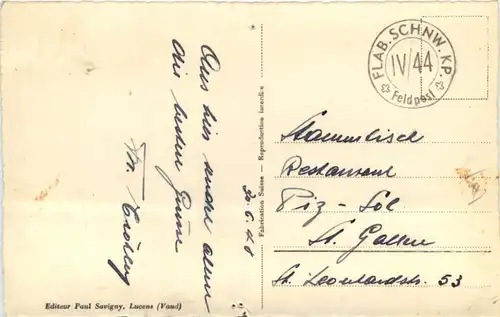 Aus hier sende allen
die besten Grüsse
20.6.48
Fabrication Suisse — Reproduction interdite
Editeur Paul Savigny, Lucens (Vaud)
FLAB. SCHNW. KP.
IV/44
Feldpost
Stammtisch
Restaurant
Piz-Sol
St. Gallen
St. Leonhardstr. 53